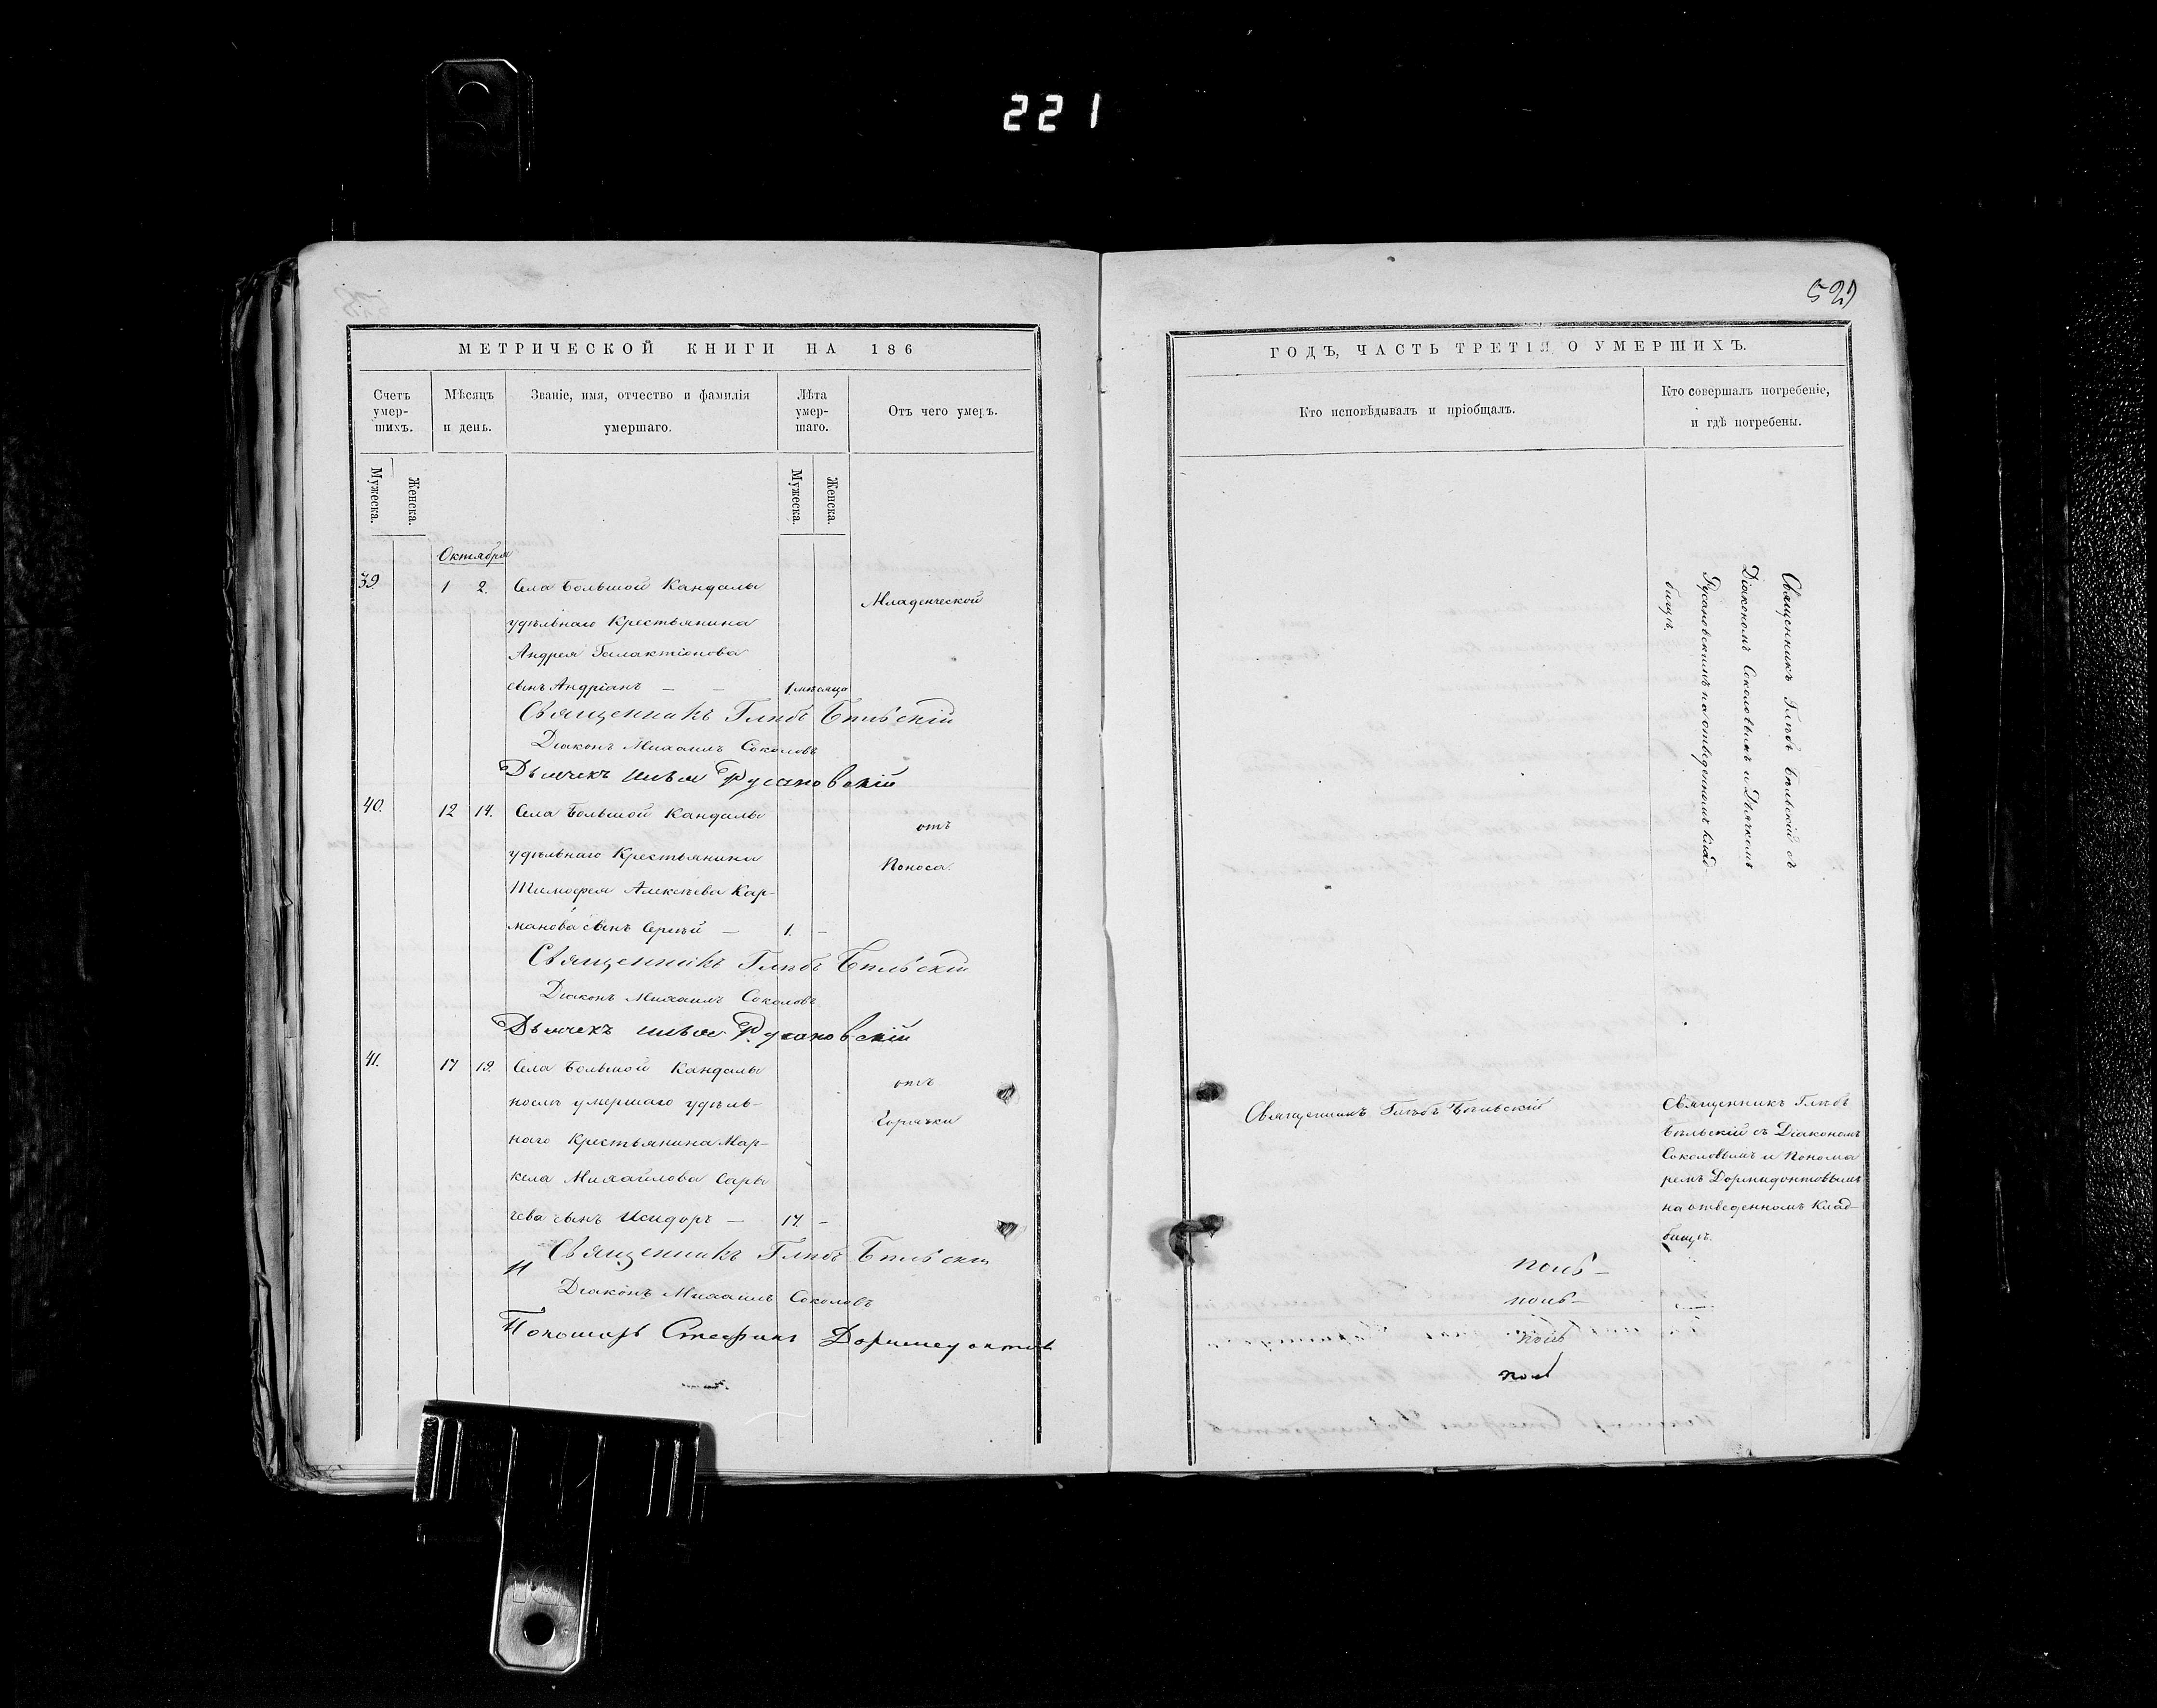 221
529
МЕТРИЧЕСКОЙ КНИГИ НА 186
Счетъ умер-
шихъ.
Мѣсяцъ
и день.
Званіе, имя, отчество и фамилія
умершаго.
Лѣта
умер-
шаго.
Отъ чего умеръ.
Мужеска.
Женска.
Мужеска.
Женска.
Октября
39. 1 2. Села Большой Кандалы
Младенческой
удѣльнаго Крестьянина
Андрея Галактіонова
сынъ Андріанъ — — 1 мѣсяца
Священникъ Глѣбъ Бѣльскій
Діаконъ Михаилъ Соколовъ
Дьячекъ Русановскій
40. 12 14. Села Большой Кандалы
отъ
удѣльнаго Крестьянина
Поноса.
Тимофея Алексѣева Кар-
манова сынъ Сергѣй — 1. –
Священникъ Глѣбъ Бѣльскій
Діаконъ Михаилъ Соколовъ
Дьячекъ Русановскій
41. 17 19. Села Большой Кандалы
отъ
послѣ умершаго удѣль-
Горячки
наго Крестьянина Мар-
кела Михайлова Сары
чева сынъ Исидоръ — 17. –
Священникъ Глѣбъ Бѣльскій
Діаконъ Михаилъ Соколовъ
Пономарь Стефанъ Дормидонтовъ
ГОДЪ, ЧАСТЬ ТРЕТІЯ О УМЕРШИХЪ.
Кто исповѣдывалъ и пріобщалъ.
Кто совершалъ погребеніе,
и гдѣ погребены.
Священникъ Глѣбъ Бѣльскій съ
Діакономъ Соколовымъ и Дьячкомъ
Русановскимъ на отведенномъ клад-
бищѣ.
Священникъ Глѣбъ Бѣльскій
Священникъ Глѣбъ
Бѣльскій съ Діакономъ
Соколовымъ и Понома
ремъ Дормидонтовымъ
на отведенномъ Клад-
бищѣ.